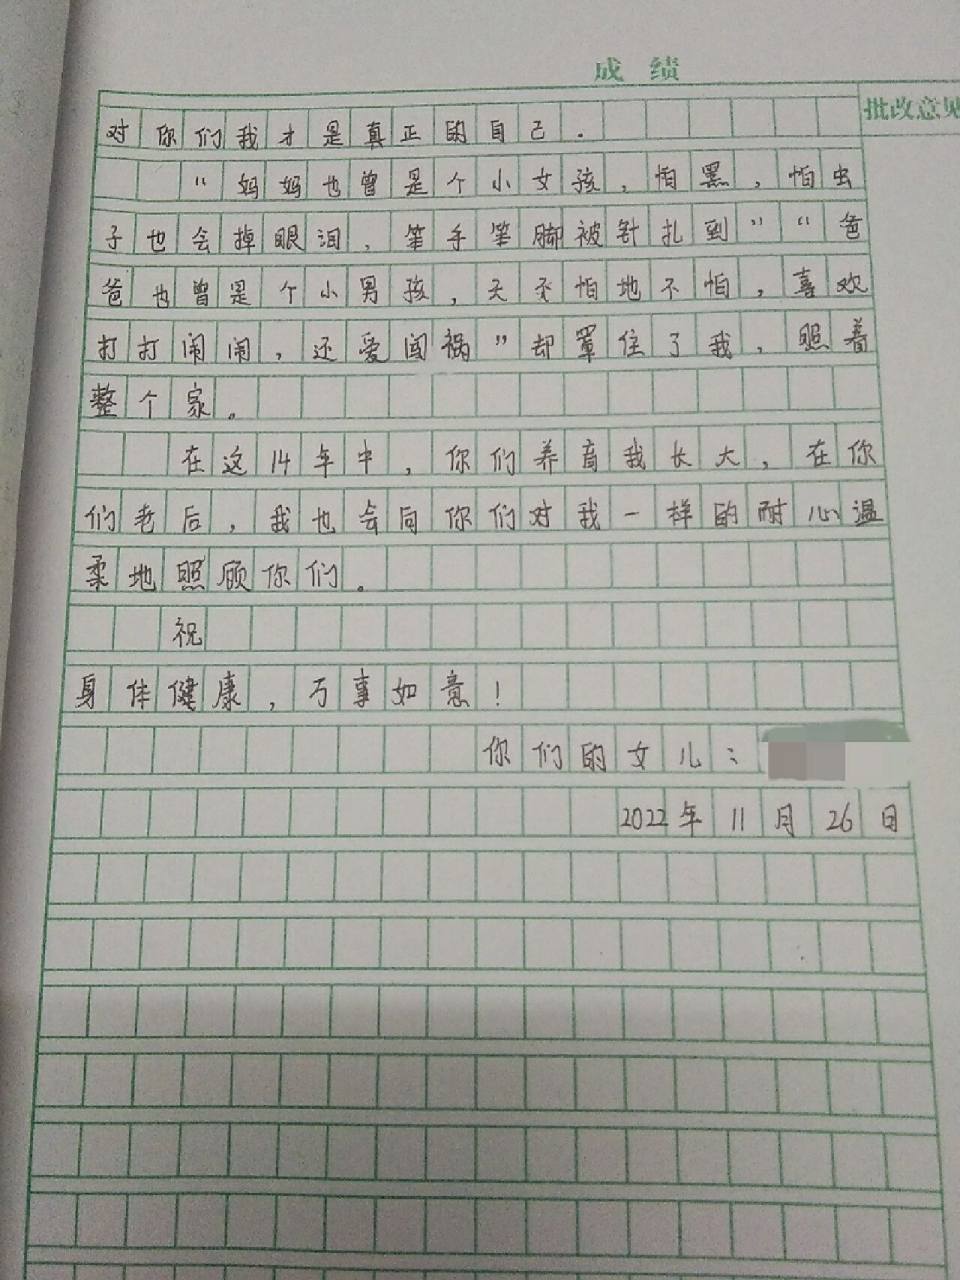 成绩
批改意见
对你们我才是真正的自己.
“妈妈也曾是个小女孩,怕黑,怕虫
子也会掉眼泪,笨手笨脚被针扎到”“爸
爸也曾是个小男孩,天不怕地不怕,喜欢
打打闹闹,还爱闯祸”却罩住了我,照着
整个家。
在这14年中,你们养育我长大,在你
们老后,我也会向你们对我一样的耐心温
柔地照顾你们。
祝
身体健康,万事如意!
你们的女儿:
2022年11月26日